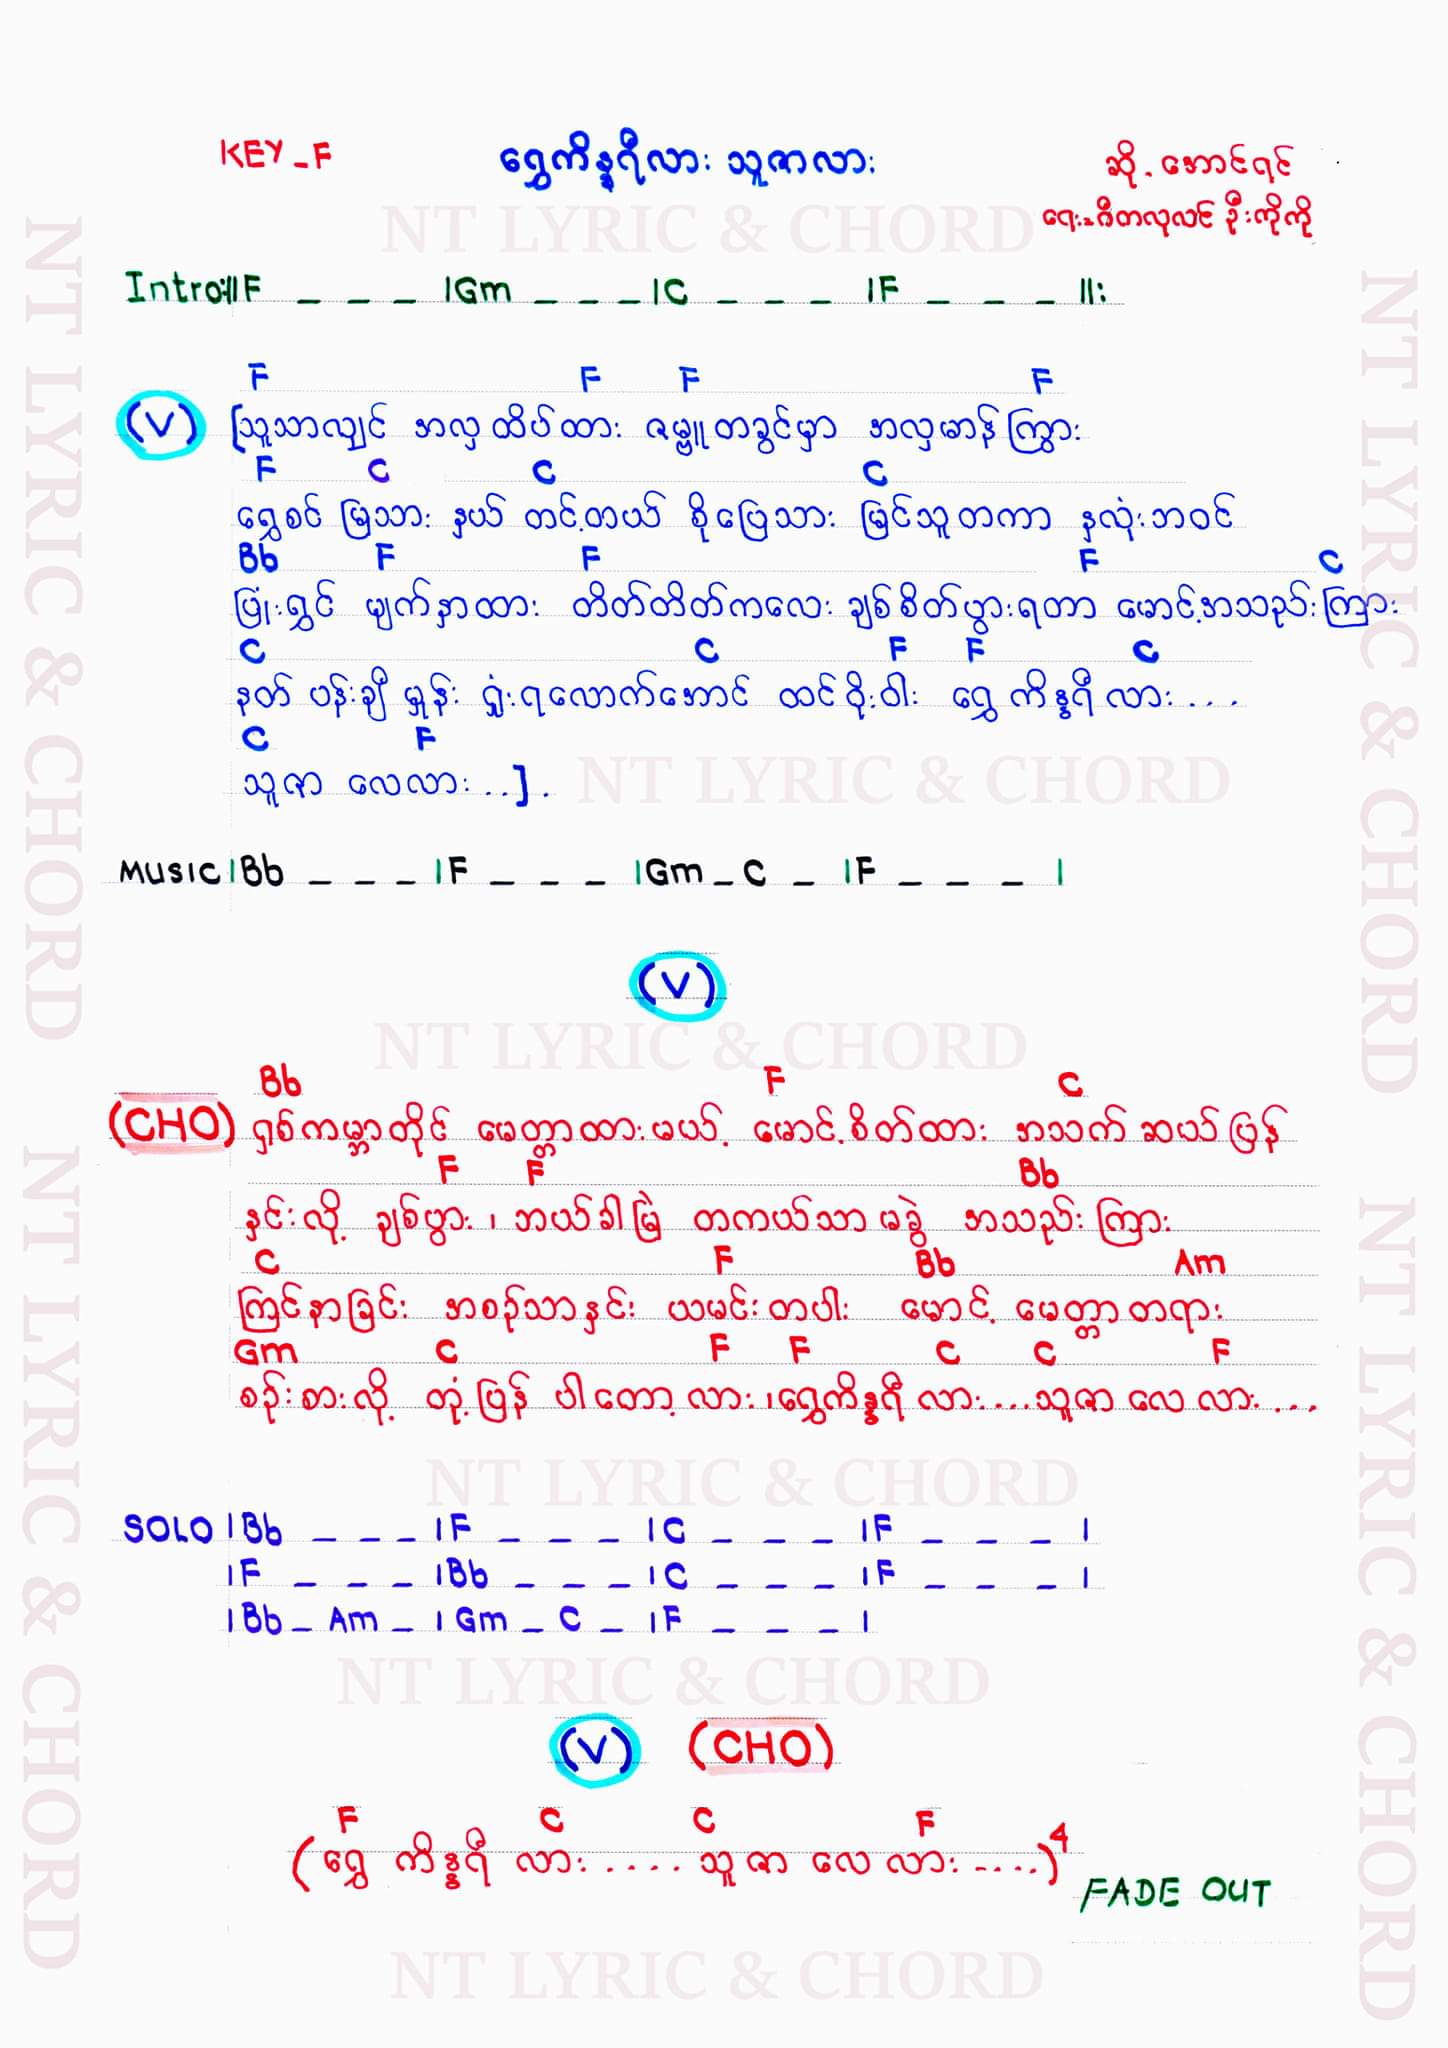 KEY - F
ရွှေကိန္နရီလား သူဇာလား
ဆို - အောင်ရင်
ရေး - ဂီတလုလင် ဦးကိုကို
NT LYRIC & CHORD
Intro :||F _ _ _ |Gm _ _ _ |C _ _ _ |F _ _ _ ||:
F F F F
(V) [သူသာလျှင် အလှထိပ်ထား ဇမ္ဗူတခွင်မှာ အလှမာန်ကြွား
F C C C
ရွှေစင် မြသား နှယ် တင့်တယ် စိုပြေသား မြင်သူတကာ နှလုံးဘဝင်
Bb F F F C
ဖြုံးရွှင် မျက်နှာထား တိတ်တိတ်ကလေး ချစ်စိတ်ပွားရတာ မောင့်အသည်းကြား
C C F F C
နတ် ပန်းချီ မှုန်း ရှုံးရလောက်အောင် ထင်မိုးဝါး ရွှေ ကိန္နရီ လား ...
C F
သူဇာ လေလား ..] .
NT LYRIC & CHORD
MUSIC |Bb _ _ _ |F _ _ _ |Gm _ C _ |F _ _ _ |
(V)
NT LYRIC & CHORD
Bb F C
(CHO) ရှစ်ကမ္ဘာတိုင် မေတ္တာထားမယ့် မောင့်စိတ်ထား အသက်ဆယ်ပြန်
F F Bb
နှင်းလို့ ချစ်ပွား ၊ ဘယ်ခါမြဲ တကယ်သာမခွဲ အသည်းကြား
C F Bb Am
ကြင်နာခြင်း အစဉ်သာနှင်း ယမင်းတပါး မောင့် မေတ္တာတရား
Gm C F F C C F
စဉ်းစားလို့ တုံ့ပြန် ပါတော့လား ၊ ရွှေကိန္နရီ လား .... သူဇာ လေ လား ...
NT LYRIC & CHORD
SOLO |Bb _ _ _ |F _ _ _ |C _ _ _ |F _ _ _ |
|F _ _ _ |Bb _ _ _ |C _ _ _ |F _ _ _ |
|Bb _ Am _ |Gm _ C _ |F _ _ _ |
NT LYRIC & CHORD
(V) (CHO)
F C C F
(ရွှေ ကိန္နရီ လား ..... သူ ဇာ လေ လား -....)4
FADE OUT
NT LYRIC & CHORD
NT LYRIC & CHORD
NT LYRIC & CHORD
NT LYRIC & CHORD
NT LYRIC & CHORD